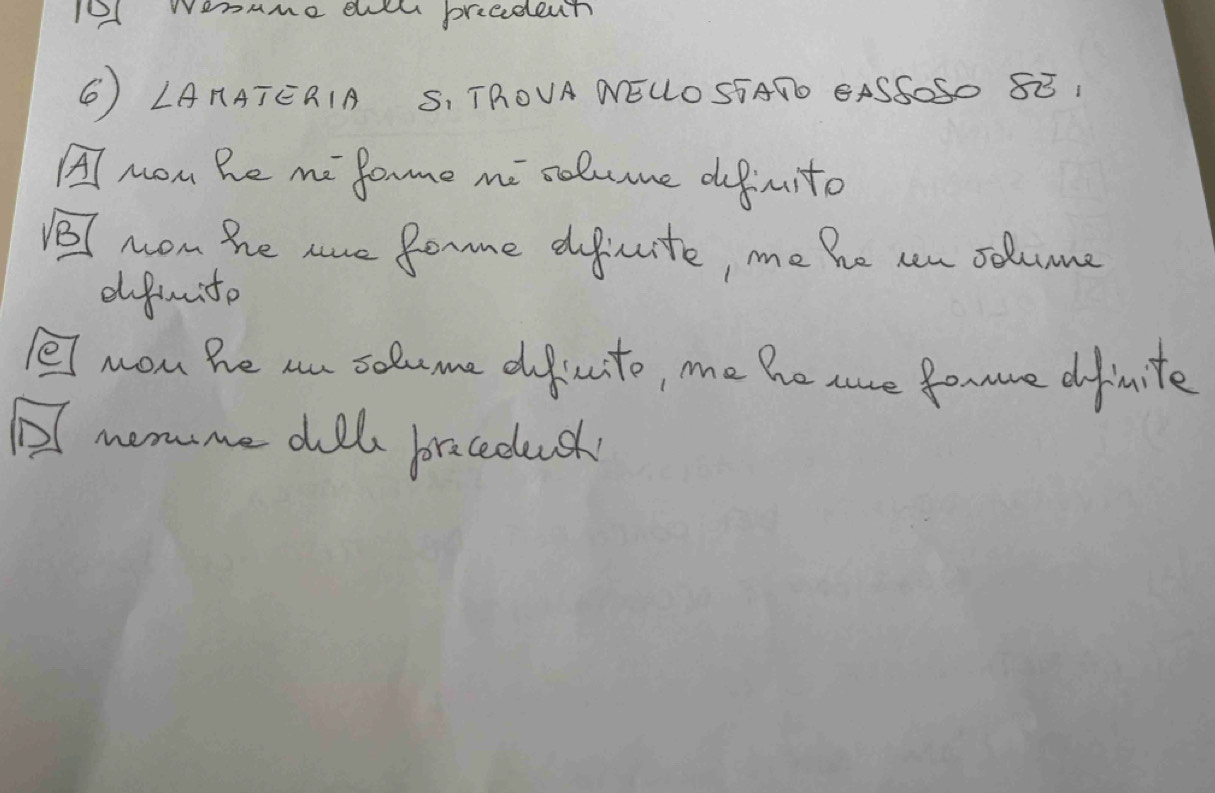 D Nessuna delle precedenti
6) LA MATERIA SI TROVA NELLO STATO GASSOSO SE:
A non ha né forma né volume definito
B non ha una forma definita, ma ha un volume
definito
C non ha un volume definito, ma ha una forma definita
D nessuna delle precedenti